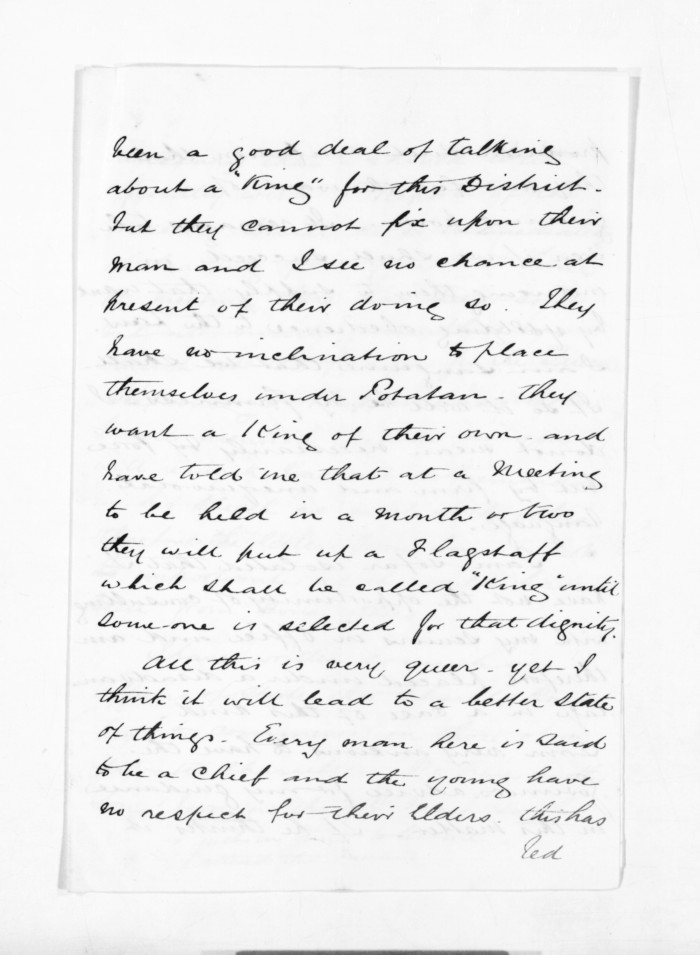 been a good deal of talking
about a "King" for this District.
but they cannot fix upon their
man and I see no chance at
present of their doing so. They
have no inclination to place
themselves under Potatau. they
want a King of their own. and
have told me that at a Meeting
to be held in a month or two
they will put up a Flagstaff
which shall be called "King" until
some-one is selected for that dignity.
All this is very queer. yet I
think it will lead to a better state
of things. Every man here is said
to be a Chief and the young have
no respect for their Elders. this has
led